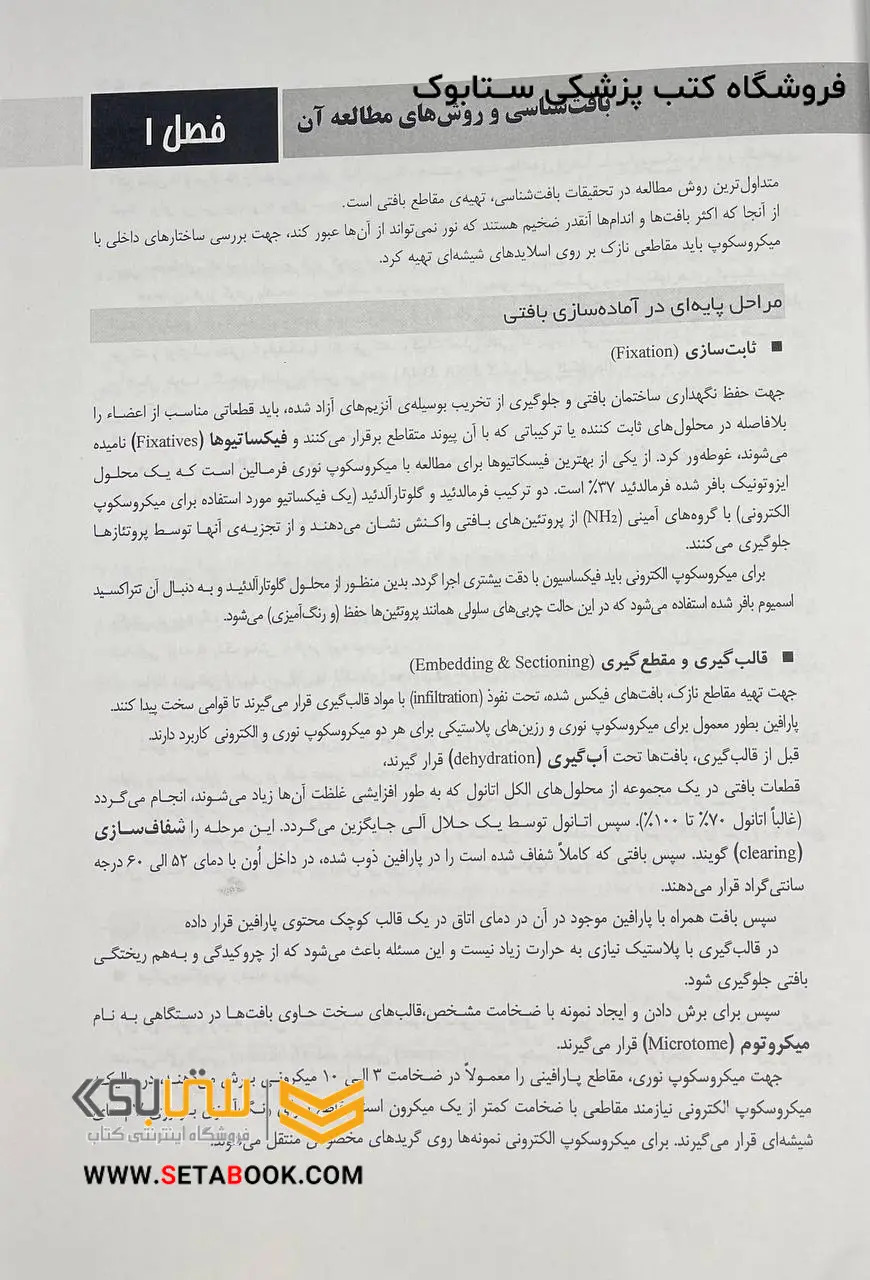 فروشگاه کتب پزشکی ستابوک
فصل ۱
بافت‌شناسی و روش‌های مطالعه آن
متداول‌ترین روش مطالعه در تحقیقات بافت‌شناسی، تهیه‌ی مقاطع بافتی است.
از آنجا که اکثر بافت‌ها و اندام‌ها آنقدر ضخیم هستند که نور نمی‌تواند از آن‌ها عبور کند، جهت بررسی ساختارهای داخلی با
میکروسکوپ باید مقاطعی نازک بر روی اسلایدهای شیشه‌ای تهیه کرد.
مراحل پایه‌ای در آماده‌سازی بافتی
■ ثابت‌سازی (Fixation)
جهت حفظ نگهداری ساختمان بافتی و جلوگیری از تخریب بوسیله‌ی آنزیم‌های آزاد شده، باید قطعاتی مناسب از اعضاء را
بلافاصله در محلول‌های ثابت کننده یا ترکیباتی که با آن پیوند متقاطع برقرار می‌کنند و فیکساتیوها (Fixatives) نامیده
می‌شوند، غوطه‌ور کرد. از یکی از بهترین فیسکاتیوها برای مطالعه با میکروسکوپ نوری فرمالین است که یک محلول
ایزوتونیک بافر شده فرمالدئید ۳۷٪ است. دو ترکیب فرمالدئید و گلوتارآلدئید (یک فیکساتیو مورد استفاده برای میکروسکوپ
الکترونی) با گروه‌های آمینی (NH2) از پروتئین‌های بافتی واکنش نشان می‌دهند و از تجزیه‌ی آنها توسط پروتئازها
جلوگیری می‌کنند.
برای میکروسکوپ الکترونی باید فیکساسیون با دقت بیشتری اجرا گردد. بدین منظور از محلول گلوتارآلدئید و به دنبال آن تتراکسید
اسمیوم بافر شده استفاده می‌شود که در این حالت چربی‌های سلولی همانند پروتئین‌ها حفظ (و رنگ‌آمیزی) می‌شود.
■ قالب‌گیری و مقطع‌گیری (Embedding & Sectioning)
جهت تهیه مقاطع نازک، بافت‌های فیکس شده، تحت نفوذ (infiltration) با مواد قالب‌گیری قرار می‌گیرند تا قوامی سخت پیدا کنند.
پارافین بطور معمول برای میکروسکوپ نوری و رزین‌های پلاستیکی برای هر دو میکروسکوپ نوری و الکترونی کاربرد دارند.
قبل از قالب‌گیری، بافت‌ها تحت آب‌گیری (dehydration) قرار گیرند،
قطعات بافتی در یک مجموعه از محلول‌های الکل اتانول که به طور افزایشی غلظت آن‌ها زیاد می‌شوند، انجام می‌گردد
(غالباً اتانول ۷۰٪ تا ۱۰۰٪). سپس اتانول توسط یک حلال آلی جایگزین می‌گردد. این مرحله را شفاف‌سازی
(clearing) گویند. سپس بافتی که کاملاً شفاف شده است را در پارافین ذوب شده، در داخل اُون با دمای ۵۲ الی ۶۰ درجه
سانتی‌گراد قرار می‌دهند.
سپس بافت همراه با پارافین موجود در آن در دمای اتاق در یک قالب کوچک محتوی پارافین قرار داده
در قالب‌گیری با پلاستیک نیازی به حرارت زیاد نیست و این مسئله باعث می‌شود که از چروکیدگی و به‌هم ریختگی
بافتی جلوگیری شود.
سپس برای برش دادن و ایجاد نمونه با ضخامت مشخص،قالب‌های سخت حاوی بافت‌ها در دستگاهی به نام
میکروتوم (Microtome) قرار می‌گیرند.
جهت میکروسکوپ نوری، مقاطع پارافینی را معمولاً در ضخامت ۳ الی ۱۰ میکرونی برش
میکروسکوپ الکترونی نیازمند مقاطعی با ضخامت کمتر از یک میکرون است
شیشه‌ای قرار می‌گیرند. برای میکروسکوپ الکترونی نمونه‌ها روی گریدهای منتقل
ستابوک
فروشگاه اینترنتی کتاب
WWW.SETABOOK.COM